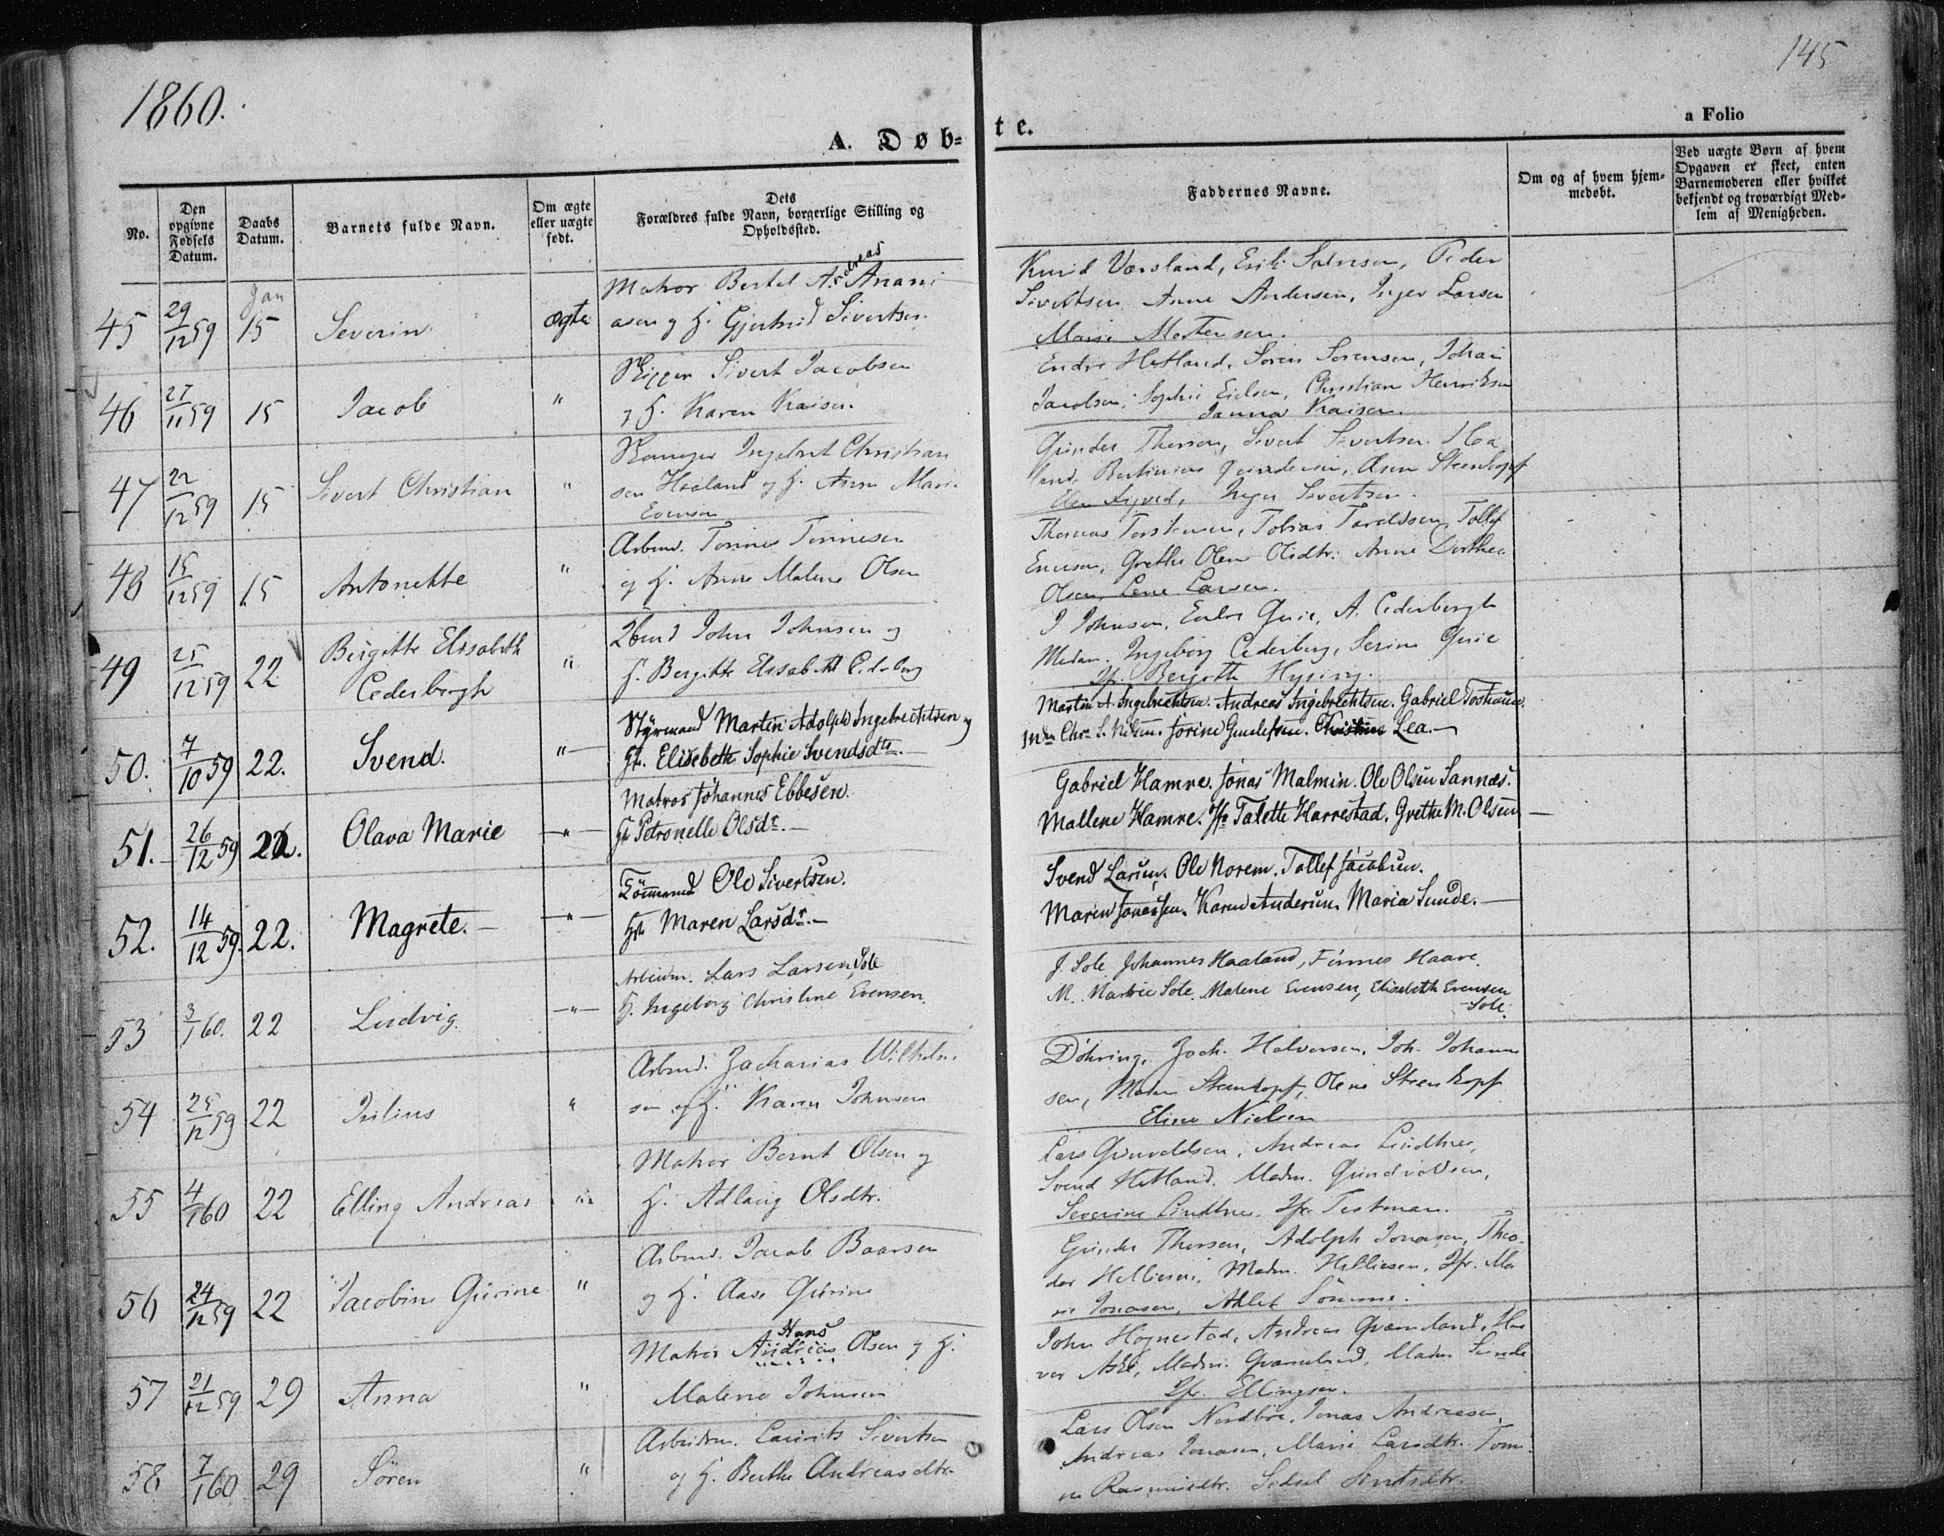 1860.
145
A. Døb-
te.
a Folio
No.
Den opgivne Fødsels Datum.
Daabs Datum.
Barnets fulde Navn.
Om ægte eller uægte født.
Dets Forældres fulde Navn, borgerlige Stilling og Opholdssted.
Faddernes Navne.
Om og af hvem hjemmedøbt.
Ved uægte Børn af hvem Opgaven er skeet, enten Barnemoderen eller hvilket bekjendt og troværdigt Medlem af Menigheden.
45 29/12 59 Jan 15 Severin ægte
Matros Bertel Andreas Anani-
asen og H. Gjertrud Sivertsen.
Knud Varsland, Erik Salvesen, Peder
Sivertsen, Anne Andersen, Inger Larsen
Marie Mortensen.
46 27/11 59 15 Jacob "
Rigger Sivert Jacobsen
og H. Karen Kaisen.
Endre Hetland, Sören Sörensen, Johan
Jacobsen, Sophie Eielsen, Christian Henriksen
Janna Kaisen.
47 22/12 59 15 Sivert Christian "
Ingebret Christian
sen Haaland og H. Anne Mari
Evensen
Gunder Thorsen, Sivert Sivertsen Haa
land, Olsen Steenkopf
Inger Sivertsen.
48 15/12 59 15 Antonette "
Arbmd. Tönnes Tönnesen
og H. Anne Malene Olsen
Thomas Torstensen, Tobias Taraldsen, Tollef
Enersen, Grethe Olene Olsdtr. Anne Dorthea
Olsen, Lene Larsen.
49 25/12 59 22 Bergitte Elisabeth "
Cederbergh
John Johnsen og
H. Bergitte Elisabeth Cederberg
J Johnsen, Endre Qvie, A. Cederbergh
Madm. Ingeborg Cederberg, Serine Qvie
Jfr. Bergitte Hysing.
50. 7/10 59 22. Svend. "
Styrmand Martin Adolph Ingebrechtsen og
H. Elisebeth Sophie Svendsdtr.—
Martin A. Ingebrechtsen. Andreas Ingebrechtsen. Gabriel Torstensen.
Mdm Chr. S. Nilsen. Jorine Gundersen. Christine Lea.—
51.- 26/12 59 22. Olava Marie —"—
Matros Johannes Ebbesen.
H. Petronelle Olsdr.—
Gabriel Hamre. Jonas Malmin. Ole Olsen Sannæs.
Mallene Hamre. Jfr Talette Harrestad. Grethe M. Olsen—
52. 14/12 59. 22. Magrete.— —"—
Tömmermd Ole Sivertsen.
H. Maren Larsdr.—
Svend Larsen. Ole Norem. Tollef Jacobsen.
Maren Jonassen. Karen Andersen. Maria Sunde.—
53 3/1 60. 22 Ludvig. —"—
Arbeidm. Lars Larsen Sole
H. Ingeborg Christine Evensen.
J. Sole. Johannes Haaland, Tönnes Haave.
M. Marthe Sole. Malene Evensen, Elisebeth Evensen
Sole.
54 25/12 59 22 Julius "
Arbmd. Zacharias Wilhelm
sen og H. Karen Johnsen
Döhring, Zach. Halvorsen, Joh. Johanne
sen, Madm Steenkopf, Oline Steenkopf
Eline Nielsen
55 4/1 60 22 Elling Andreas "
Matros Bernt Olsen og
H. Adlaug Olsdtr.
Lars Grunveldsen, Andreas Lindtner,
Svend Hetland. Madm. Grundvoldsen,
Severine Lindtner, Jfr. Testman.
56 24/12 59 22 Jacobine Gurine "
Arbmd. Jacob Baarsen
og H. Aase Gurine
Gunder Thorsen, Adolph Jonasen, Theo-
dor Helliesen, Madm. Helliesen, Jfr. Ma
rie Jonasen, Ahlet Sömme.
57 21/12 59 29 Anna "
Matros Andreas Hans Olsen og H.
Malene Johnsen
John Hognestad, Andreas Qvameland, Hal
vor Ask, Madm. Qvameland, Madm Sunde
Jfr. Ellingsen.
58 7/1 60 29 Sören "
Arbeidsm. Laurits Sivertsen
og H. Berthe Andreasdtr.
Lars Olsen Nordböe, Jonas Andreasen,
Andreas Jonasen, Marie Larsdtr. Tom-
Rasmusdtr. Sidsel Sivertsdtr.